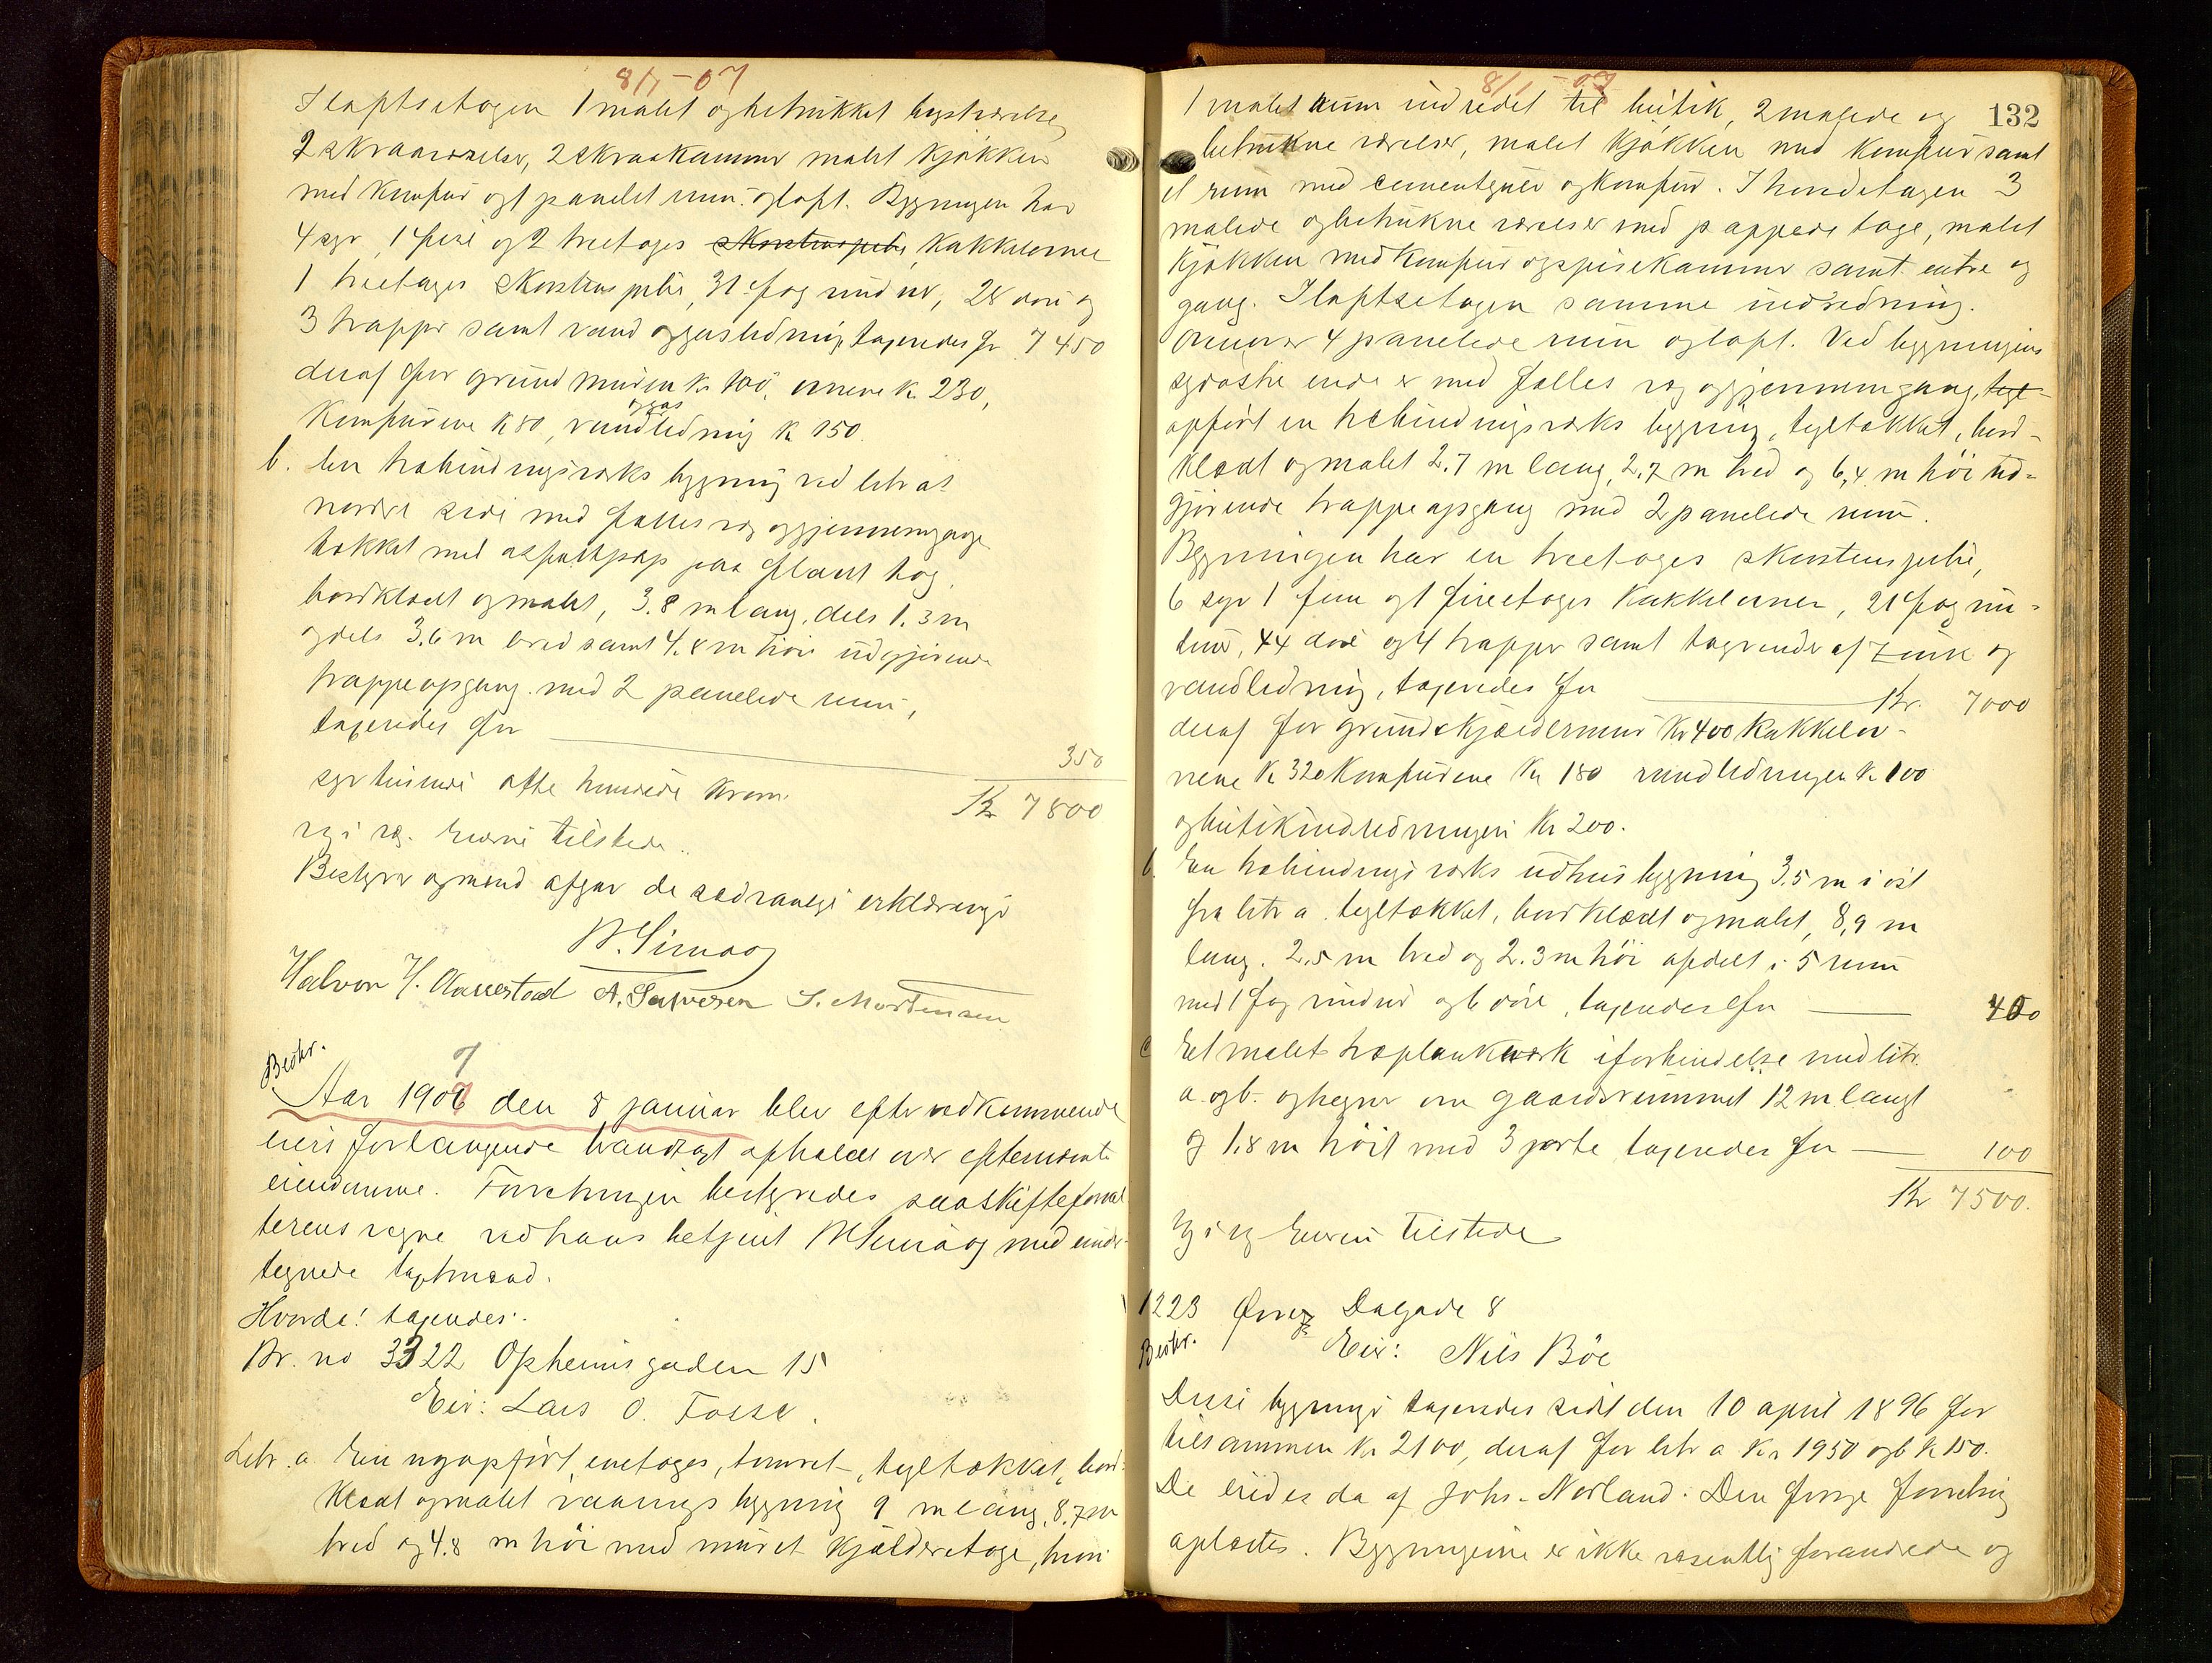 8/1-07
I loftsetagen 1 malet og betrukket lystværelse,
2 skraaværelser, 2 skraakammer malet kjøkken
med komfur og 1 panelet rum og loft. Bygningen har
4 syv, 1 fire og 2 treetages skorstenspibe, kakkelovne
1 treetages skorstenspibe, 31 fag vinduer, 28 døre og
3 trapper samt vand og gasledning, taxeredes for 7450
deraf for grundmuren kr 100, ovnene kr 230,
komfurene kr 80, vand og gas ledning kr 150.
b. En træbindingsværks bygning ved litr a's
nordre side med fælles væg og gjennemgange
tækket med asfaltpap paa fladt tag,
bordklædt og malet, 3.8 m lang, dels 1.3 m
og dels 3.6 m bred samt 4.8 m høi udgjørende
trappeopgang med 2 panelede rum,
taxeredes for 350
syv tusinde otte hundrede kroner Kr 7800
Eieren tilstede.
Bestyrer og mænd afgav de sædvanlige erklæringer
Halvor H. A. Salvesen S. Mortensen
Beskr.
Aar 1907 den 8 januar blev efter vedkommende
eiers forlangende brandtaxt afholdt over efternævnte
eiendomme. Forretningen bestyredes paa skifteforval
terens vegne ved hans betjent med under-
tegnede taxtmænd.
Hvorda! taxeredes:
Br. no 3322 Opheimsgaden 15
Eier: Lars O. Fosse.
Litr. a En nyopført, enetages, tømret, tegltækket, bord-
klædt og malet vaanings bygning 9 m lang, 8,7 m
bred og 4.8 m høi med muret kjælderetage, hvori
8/1-07
132
1 malet rum indredet til butik, 2 malede og
betrukne værelser, malet kjøkken med komfur samt
et rum med cementgulv og komfur. I hovedetagen 3
malede og betrukne værelser med pappede tage, malet
kjøkken med komfur og spisekammer samt entre og
gang. I loftsetagen samme indredning.
Ovenover 4 panelede rum og loft. Ved bygningens
sydøstre ende er med fælles væg og gjennemgang, tegl-
opført en træbindingsværks bygning, tegltækket, bord-
klædt og malet 2.7 m lang, 2.7 m bred og 6,4 m høi ud-
gjørende trappeopgang med 2 panelede rum.
Bygningen har en treetages skorstenspibe,
6 syv 1 fem og 1 fireetages kakkelovner, 21 fag vin-
duer, 44 døre og 4 trapper samt tagrender af zink og
vandledning, taxeredes for Kr. 7000
deraf for grund & kjældermur kr 400 kakkelov-
nene kr 320 komfurene kr 180 vandledningen kr 100
og butikindredningen kr 200.
b. En træbindingsværks udhusbygning 3.5 m i øst
fra litr a. tegltækket, bordklædt og malet, 8,9 m
lang. 2.5 m bred og 2.3 m høi afdelt i 5 rum
med 1 fag vindu og 6 døre, taxeredes for 400
c Et malet træplankværk i forbindelse med litr.
a. og b. og hegner om gaardsrummet 12 m langt
og 1.8 m høit med 3 porte taxeredes for 100
Kr 7500.
Eieren tilstede
1223 Øvre Dalgade 8
Beskr.
Eier: Nils Böe
Disse bygninger taxeredes sidst den 10 april 1896 for
tilsammen kr 2100, deraf for litr a kr 1950 og b kr 150.
De eiedes da af Johs. Norland. Den forrige forretning
oplæstes. Bygningerne er ikke væsentlig forandrede og